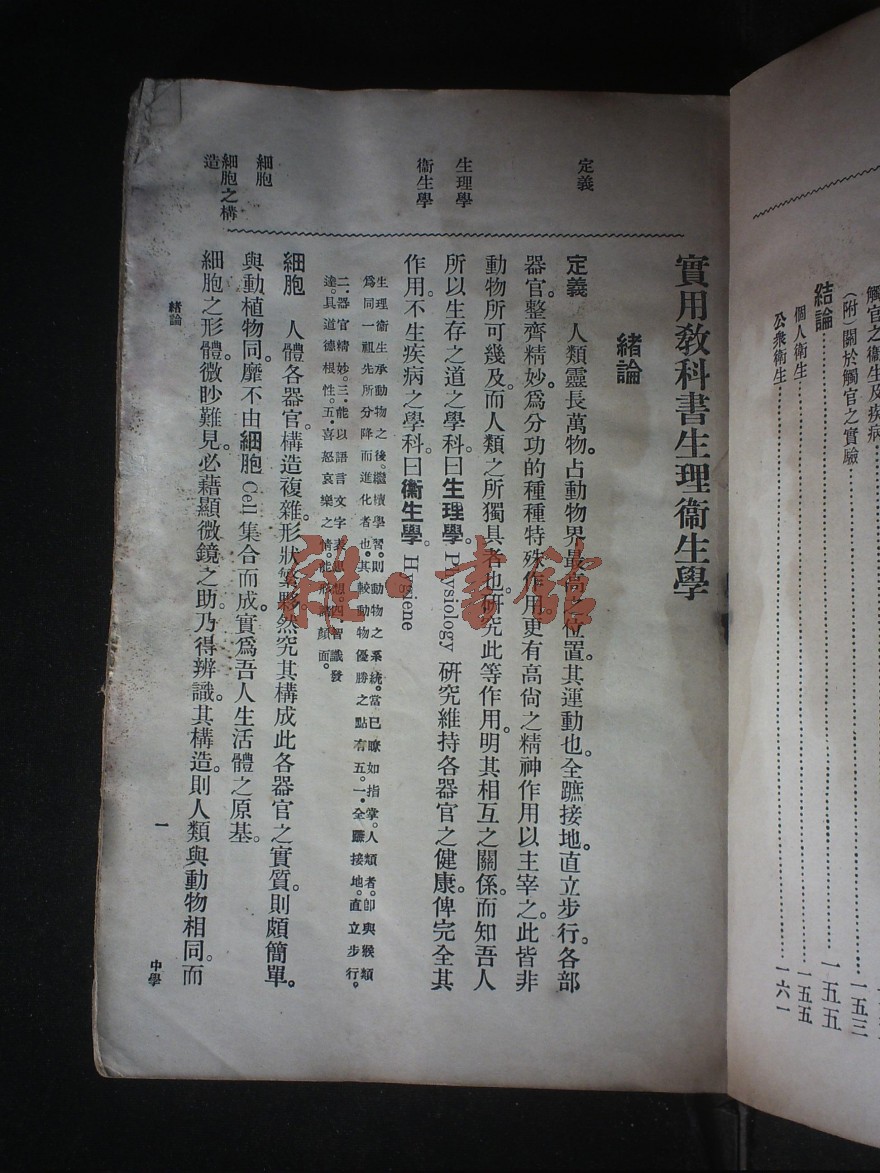 觸官之衞生及疾病
(附)關於觸官之實驗……一五三
結論……一五五
個人衞生……一五五
公衆衞生……一六一
實用敎科書生理衞生學
緖論
定義
定義 人類靈長萬物。占動物界最高之位置。其運動也。全蹠接地。直立步行。各部
器官。整齊精妙。爲分功的種種特殊作用。更有高尙之精神作用以主宰之。此皆非
動物所可幾及。而人類之所獨具者也。研究此等作用。明其相互之關係。而知吾人
生理學
所以生存之道之學科。曰生理學。Physiology 硏究維持各器官之健康。俾完全其
衞生學
作用。不生疾病之學科。曰衞生學。Hygiene
生理衞生承動物之後。繼續學習。則動物之系統。當已瞭如指掌。人類者。卽與猴類
爲同一祖先所分降而進化者也。其較動物優勝之點有五。一.全蹠接地。直立步行。
二.器官精妙。三.能以語言文字表思想。四.智識發
達。具道德根性。五.喜怒哀樂之情。能形諸顏面。
細胞
細胞 人體各器官。構造複雜。形狀繁夥。然究其構成此各器官之實質。則頗簡單。
與動植物同。靡不由細胞 Cell 集合而成。實爲吾人生活體之原基。
細胞之構造
細胞之形體。微眇難見。必藉顯微鏡之助。乃得辨識。其構造。則人類與動物相同。而
緖論
一
中學
雜·書館